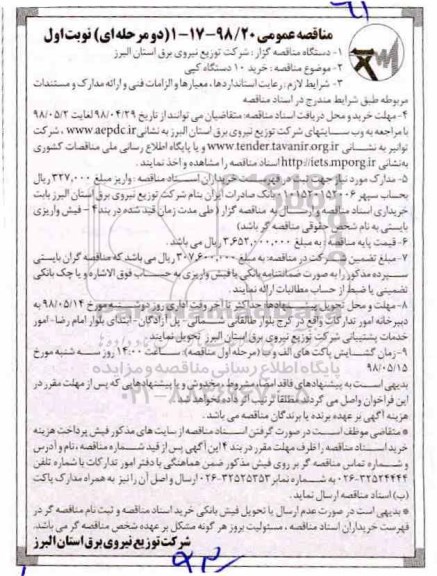 مناقصه عمومی ۹۸/۲۰-۱۷-۱ (دو مرحله ای) نوبت اول
۱- دستگاه مناقصه گزار : شرکت توزیع نیروی برق استان البرز
۲- موضوع مناقصه : خرید ۱۰ دستگاه کپی
۳- شرایط لازم : رعایت استانداردها ، معیارها و الزامات فنی و ارائه مدارک و مستندات
مربوطه طبق شرایط مندرج در اسناد مناقصه
۴- مهلت خرید و محل دریافت اسناد مناقصه : متقاضیان می توانند از تاریخ ۹۸/۰۴/۲۹ لغایت ۹۸/۰۵/۲
با مراجعه به وب سایتهای شرکت توزیع نیروی برق استان البرز به نشانی www.aepdc.ir ، شرکت
توانیر به نشانی www.tender.tavanir.org.ir و یا پایگاه اطلاع رسانی ملی مناقصات کشوری
به نشانی http://iets.mporg.ir اسناد مناقصه را مشاهده و اخذ نمایند .
۵- مدارک مورد نیاز جهت خریداران اسناد مناقصه : واریز مبلغ ۳۲۷,۰۰۰ ریال
بحساب سپهر بانک صادرات ایران بنام شرکت توزیع نیروی برق استان البرز بابت
خریداری اسناد مناقصه و ارسال به مناقصه گزار (طی مدت زمان قید شده در بند ۴ - فیش واریزی
بایستی به نام شخص حقوقی مناقصه گر باشد)
۶- قیمت پایه مناقصه : به مبلغ ۳,۶۵۲,۰۰۰,۰۰۰ ریال می باشد.
۷- مبلغ تضمین شرکت در مناقصه : به مبلغ ریال می باشد که مناقصه گران بایستی
سپرده مذکور را به صورت ضمانتنامه بانکی یا فیش واریزی به حساب فوق الاشاره و یا چک بانکی
تضمینی یا ضبط از حساب مطالبات ارائه نمایند .
۸- مهلت و محل تحویل پیشنهادها : حداکثر تا آخر وقت اداری روز دوشنبه مورخ ۹۸/۰۵/۱۴ به
دبیرخانه امور تدارکات واقع در کرج بلوار طالقانی شمالی - پل آزادگان - ابتدای بلوار امام رضا - امور
خدمات پشتیبانی شرکت توزیع نیروی برق استان البرز تحویل نمایند .
۹- زمان گشایش پاکت های الف و ب (مرحله اول مناقصه) : ساعت ۱۴:۰۰ روز سه شنبه مورخ
۹۸/۰۵/۱۵
بدیهی است به پیشنهادهای فاقد امضاء ، مشروط ، مخدوش و یا پیشنهادهایی که پس از مهلت مقرر در
این فراخوان واصل می گردد ، مطلقا ترتیب اثر داده نخواهد شد .
هزینه آگهی بر عهده برنده یا برندگان مناقصه می باشد .
* متقاضی موظف است در صورت گرفتن اسناد مناقصه از سایت های مذکور فیش پرداخت هزینه
خرید اسناد مناقصه را ظرف مهلت مقرر در بند ۴ این آگهی پس از قید شماره مناقصه ، نام و آدرس
و شماره تماس مناقصه گر بر روی فیش مذکور ضمن هماهنگی با دفتر امور تدارکات با شماره تلفن
۰۲۶-۳۲۵۲۴۴۴۴ به شماره نمابر ۰۲۶-۳۲۵۲۵۳۵۳ ارسال و اصل آن را نیز به همراه مدارک پاکت
(ب) اسناد مناقصه ارسال نماید .
* بدیهی است در صورت عدم ارسال یا تحویل فیش بانکی خرید اسناد مناقصه و ثبت نام مناقصه گر در
فهرست خریداران اسناد مناقصه ، مسئولیت بروز هر گونه مشکل بر عهده شخص مناقصه گر می باشد.
شرکت توزیع نیروی برق استان البرز